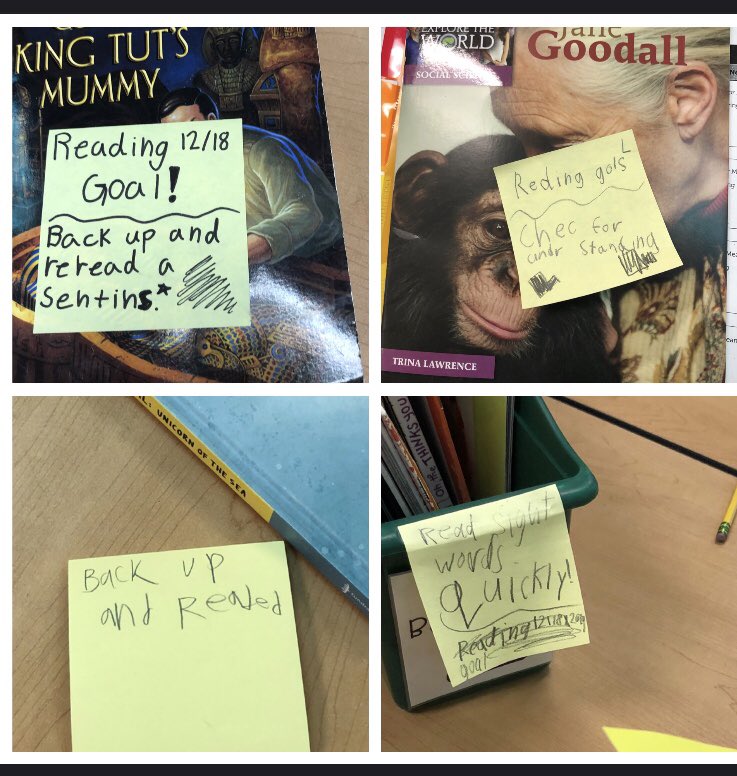 KING TUT'S
MUMMY
Reading 12/18
Goal!
Back up and
reread a
Sentins.*
EXPLORE THE
WORLD
SOCIAL
Jane
Goodall
Reding gols
Chec for
andr standing
TRINA LAWRENCE
UNICORN OF THE SEA
Back up
and Readed
oh the THINKS YOU
Read sight
words
Quickly!
Reading 12/18
goal
B